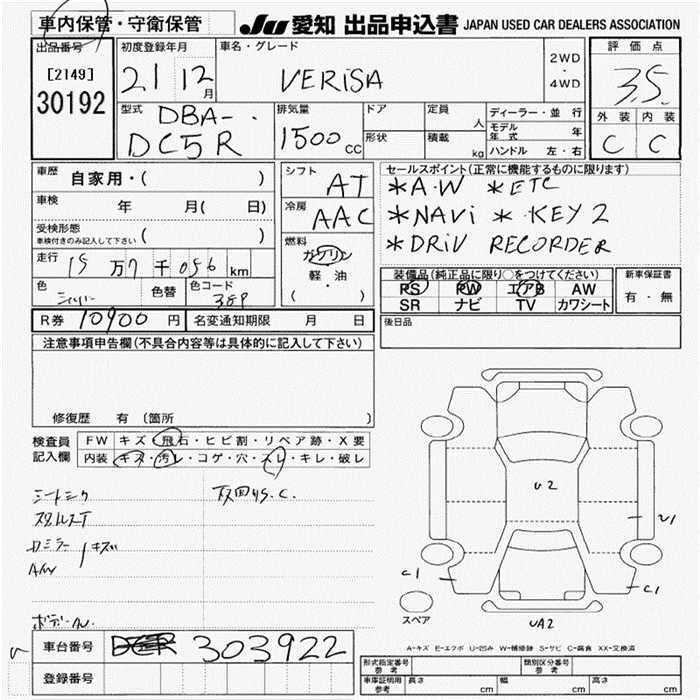 車内保管・守衛保管
JU 愛知 出品申込書 JAPAN USED CAR DEALERS ASSOCIATION
出品番号
[2149]
30192
初度登録年月
21 12月
車名・グレード
VERiSA
2WD
・
4WD
評価点
3.5
外装 内装
C C
型式
DBA-
DC5R
排気量
1500 CC
ドア
形状
定員 人
積載 kg
ディーラー・並行
モデル年式 年
ハンドル 左・右
車歴 自家用・( )
車検 年 月( 日)
受検形態
車検付きのみ記入して下さい ( )
走行 15万7千056km
色 シルバー
色替
色コード 38P
シフト AT
冷房 AAC
燃料
ガソリン
軽・油
( )
セールスポイント(正常に機能するものに限ります)
*A・W *ETC
*NAVi *・KEY2
*DRiV RECORDER
装備品(純正品に限り○をつけてください)
PS PW エアB AW
SR ナビ TV カワシート
新車保証書
有・無
R券 10900円
名変通知期限 月 日
後日品
注意事項申告欄(不具合内容等は具体的に記入して下さい)
修復歴 有 (箇所 )
検査員記入欄
FW キズ・飛石・ヒビ割・リペア跡・X要
内装 キズ・汚レ・コゲ・穴・スレ・キレ・破レ
シートシワ
A/W
キズ
U2
U1
C1
C1
UA2
スペア
A-キズ E-エクボ U-凹み W-補修跡 S-サビ C-腐食 XX-交換済
車台番号 303922
登録番号
形式指定番号
参考
類別区分番号
参考
車庫証明用
参考
長さ cm
幅 cm
高さ cm